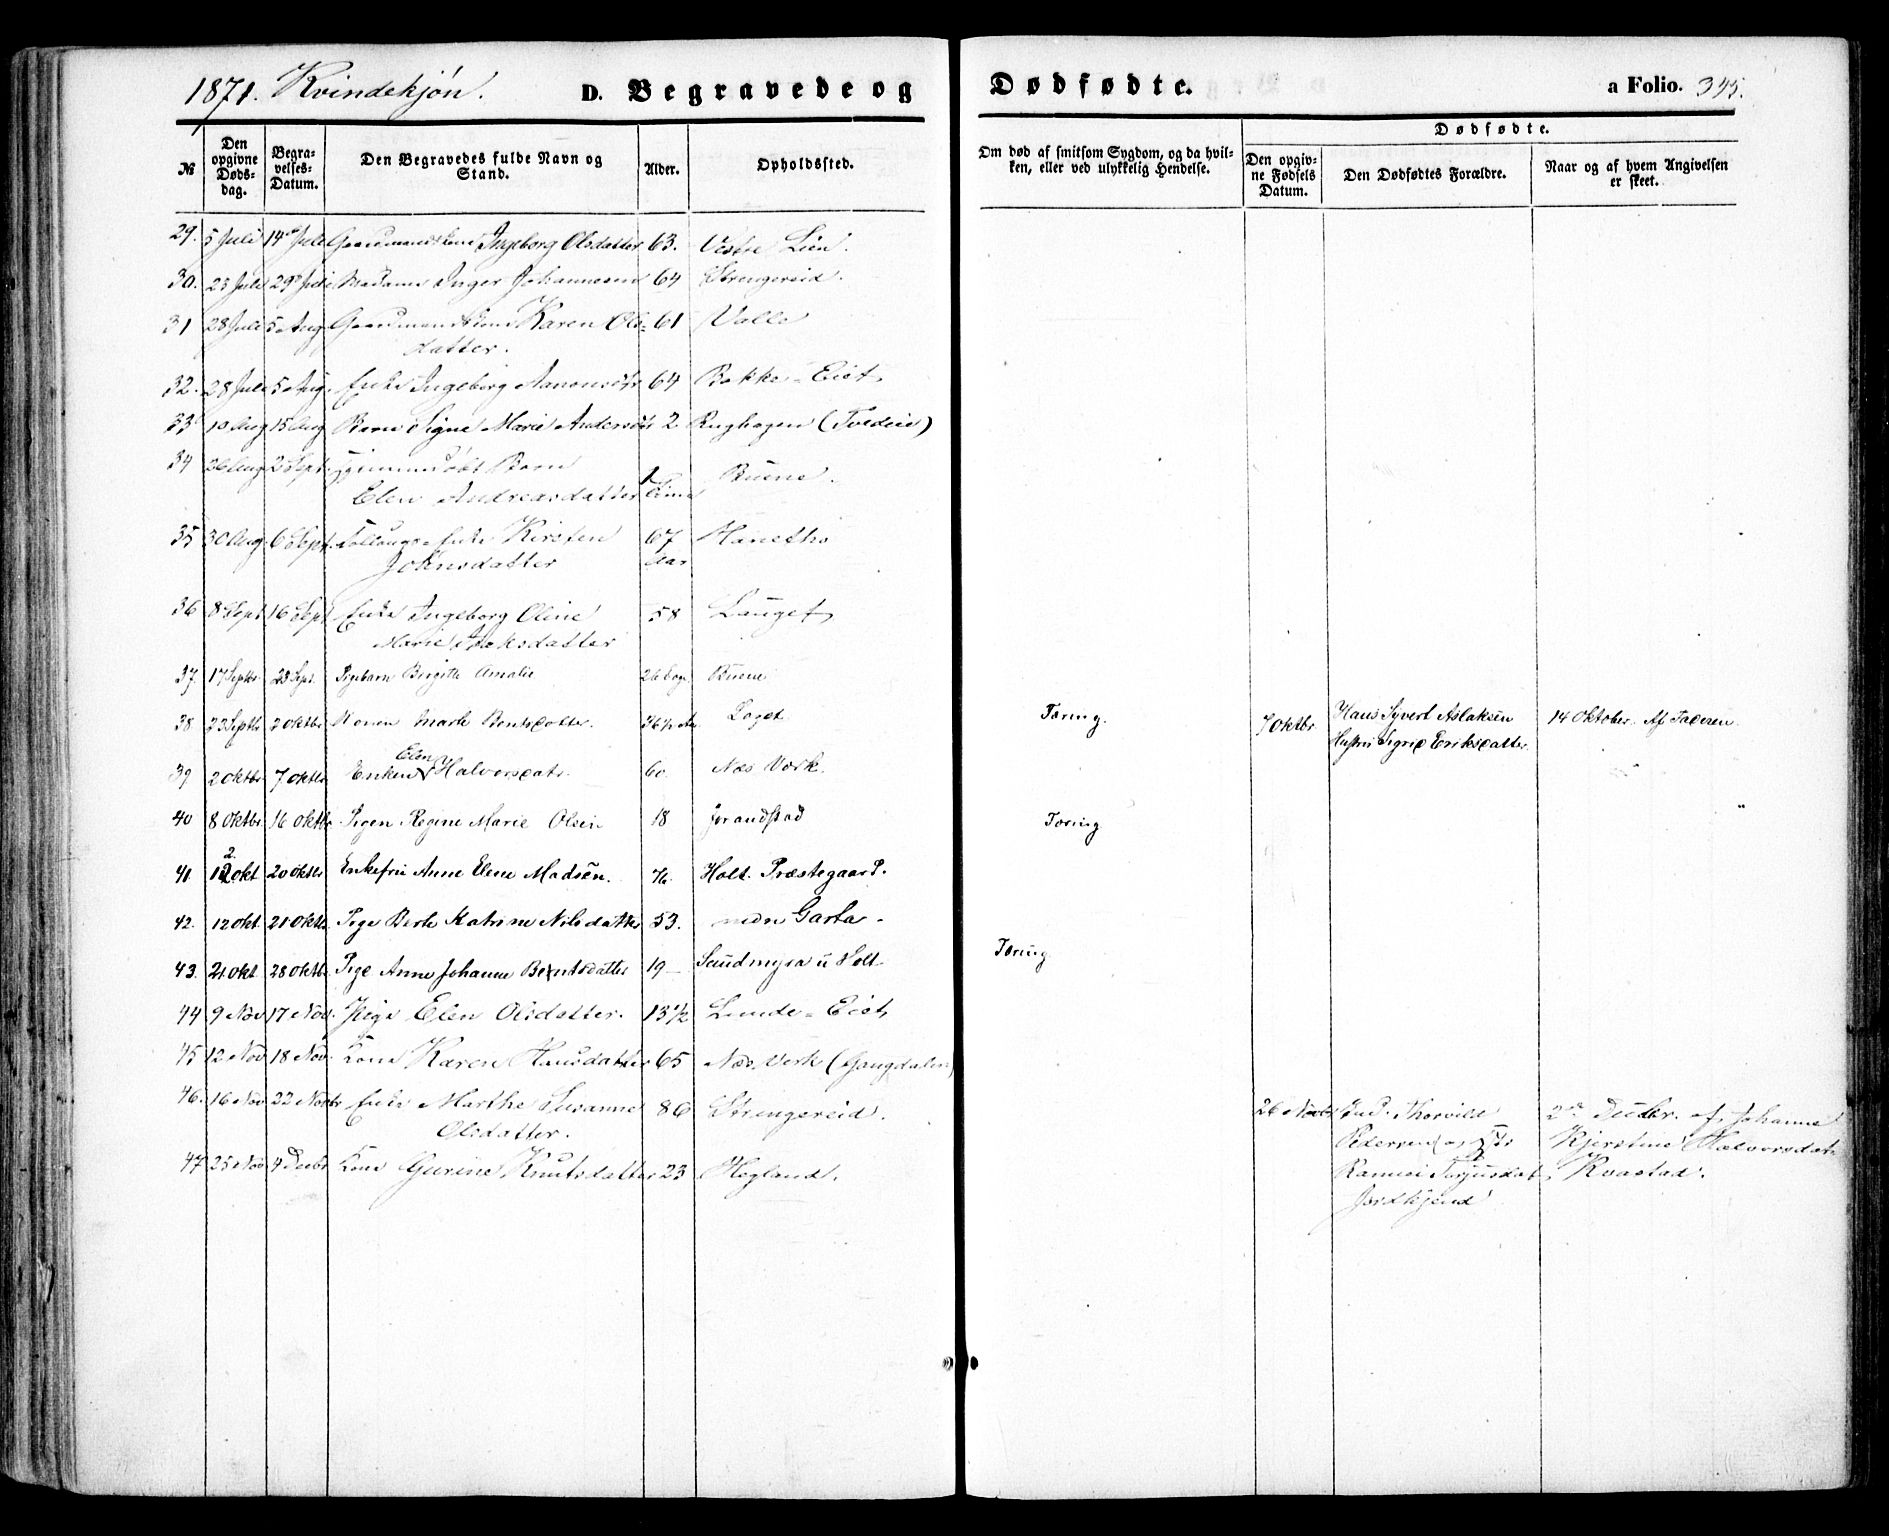 1871. Kvindekjøn. D. Begravede og Dødfødte. a Folio. 345.
№ Den opgivne Døds-dag. Begra-velses-Datum. Den Begravedes fulde Navn og Stand. Alder. Opholdssted. Om død af smitsom Sygdom, og da hvil-ken, eller ved ulykkelig Hendelse. Dødfødte. Den opgiv-ne Fødsels Datum. Den Dødfødtes Forældre. Naar og af hvem Angivelsen er skeet.
29. 5 Juli 14 Juli Gaardmandskone Ingeborg Olsdatter 63. Vestre Lien.
30. 23 Juli 29 Juli Madame Inger Johannesen 64 Strengereid.
31 28 Juli 5 Aug Gaardmandskone Karen Ols-
datter. 61 Valle
32. 28 Juli 5 Aug. Enke Ingeborg Aanonsdtr 64 Bakke-Eiet
33 10 Aug 15 Aug Barn Signe Marie Andersdtr 2 Rughagen (Tvedeie)
34 26 Aug 2 Sept. Hjemmedøbt Barn
Elen Andreasdatter 1 Time Buene.
35 30 Aug. 6 Sept. Enke Kirsten
Johnsdatter 67 Aar Hanetho
36 8 Sept 16 Sept Enke Ingeborg Oline
Marie Isaksdatter 58 Lauget
37. 17 Septbr. 23 Sept. Pigebarn Birgitte Amalie 26 Dage Buene
38 23 Septbr 2 oktbr Konen Marte Berntsdatter. 36 1/2 Aar Laget Tæring. 7 oktbr Hans Syvert Aslaksen 14 Oktober. Af Faderen.
Hustru Sigrid Eriksdatter
39 2 oktbr 7 oktbr Enken Elen Halversdatr. 60. Næs Værk.
40 8 oktbr. 16 oktbr Pigen Regine Marie Olsen 18 Jorandstad Tæring
41. 12 okt. 20 oktbr Enkefru Anne Elene Madsen. 76. Holt Præstegaard.
42. 12 okt. 21 oktbr. Pige Berte Katrine Nilsdatter 53. nedn Garta.
43. 21 okt 28 oktbr. Pige Anne Johanne Berntsdatter 19 Sandmyra u Holt Tæring
44 9 Nov 17 Nov. Pige Elen Olsdatter. 13 1/2 Lunde-Eiet
45 12 Nov 18 Nov. Kone Karen Hansdatter 65 Næs Verk (Gangdalen)
46. 16 Nov 22 Novbr Enke Marthe Susanne
Olsdatter. 86 Strengereid. 26 Novbr Thorvild
Petersen og 2den Decbr. af Johanne
Kjerstine Halvorsdat
47 25 Nov 4 Decbr Kone Gurine Knutsdatter 23 Hegland. Ramei Terjusdat. Kvastad.
Jordkjend